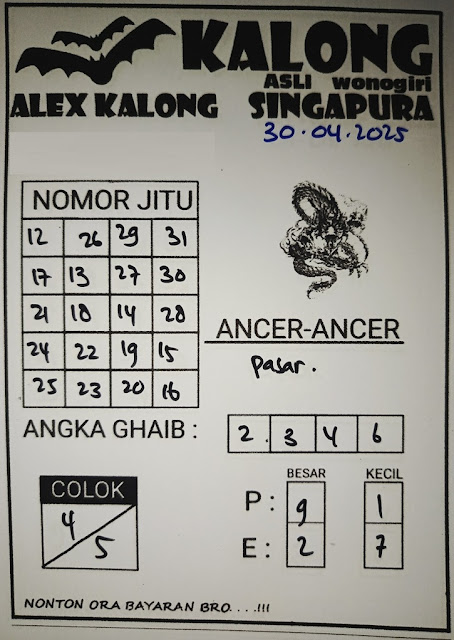 KALONG
ASLI wonogiri
ALEX KALONG SINGAPURA
30.04.2025
NOMOR JITU
12 26 29 31
17 13 27 30
21 18 14 28
24 22 19 15
25 23 20 16
ANCER-ANCER
Pasar.
ANGKA GHAIB : 2. 3 4 6
COLOK
4
5
BESAR KECIL
P : 9 1
E : 2 7
NONTON ORA BAYARAN BRO. . . .!!!